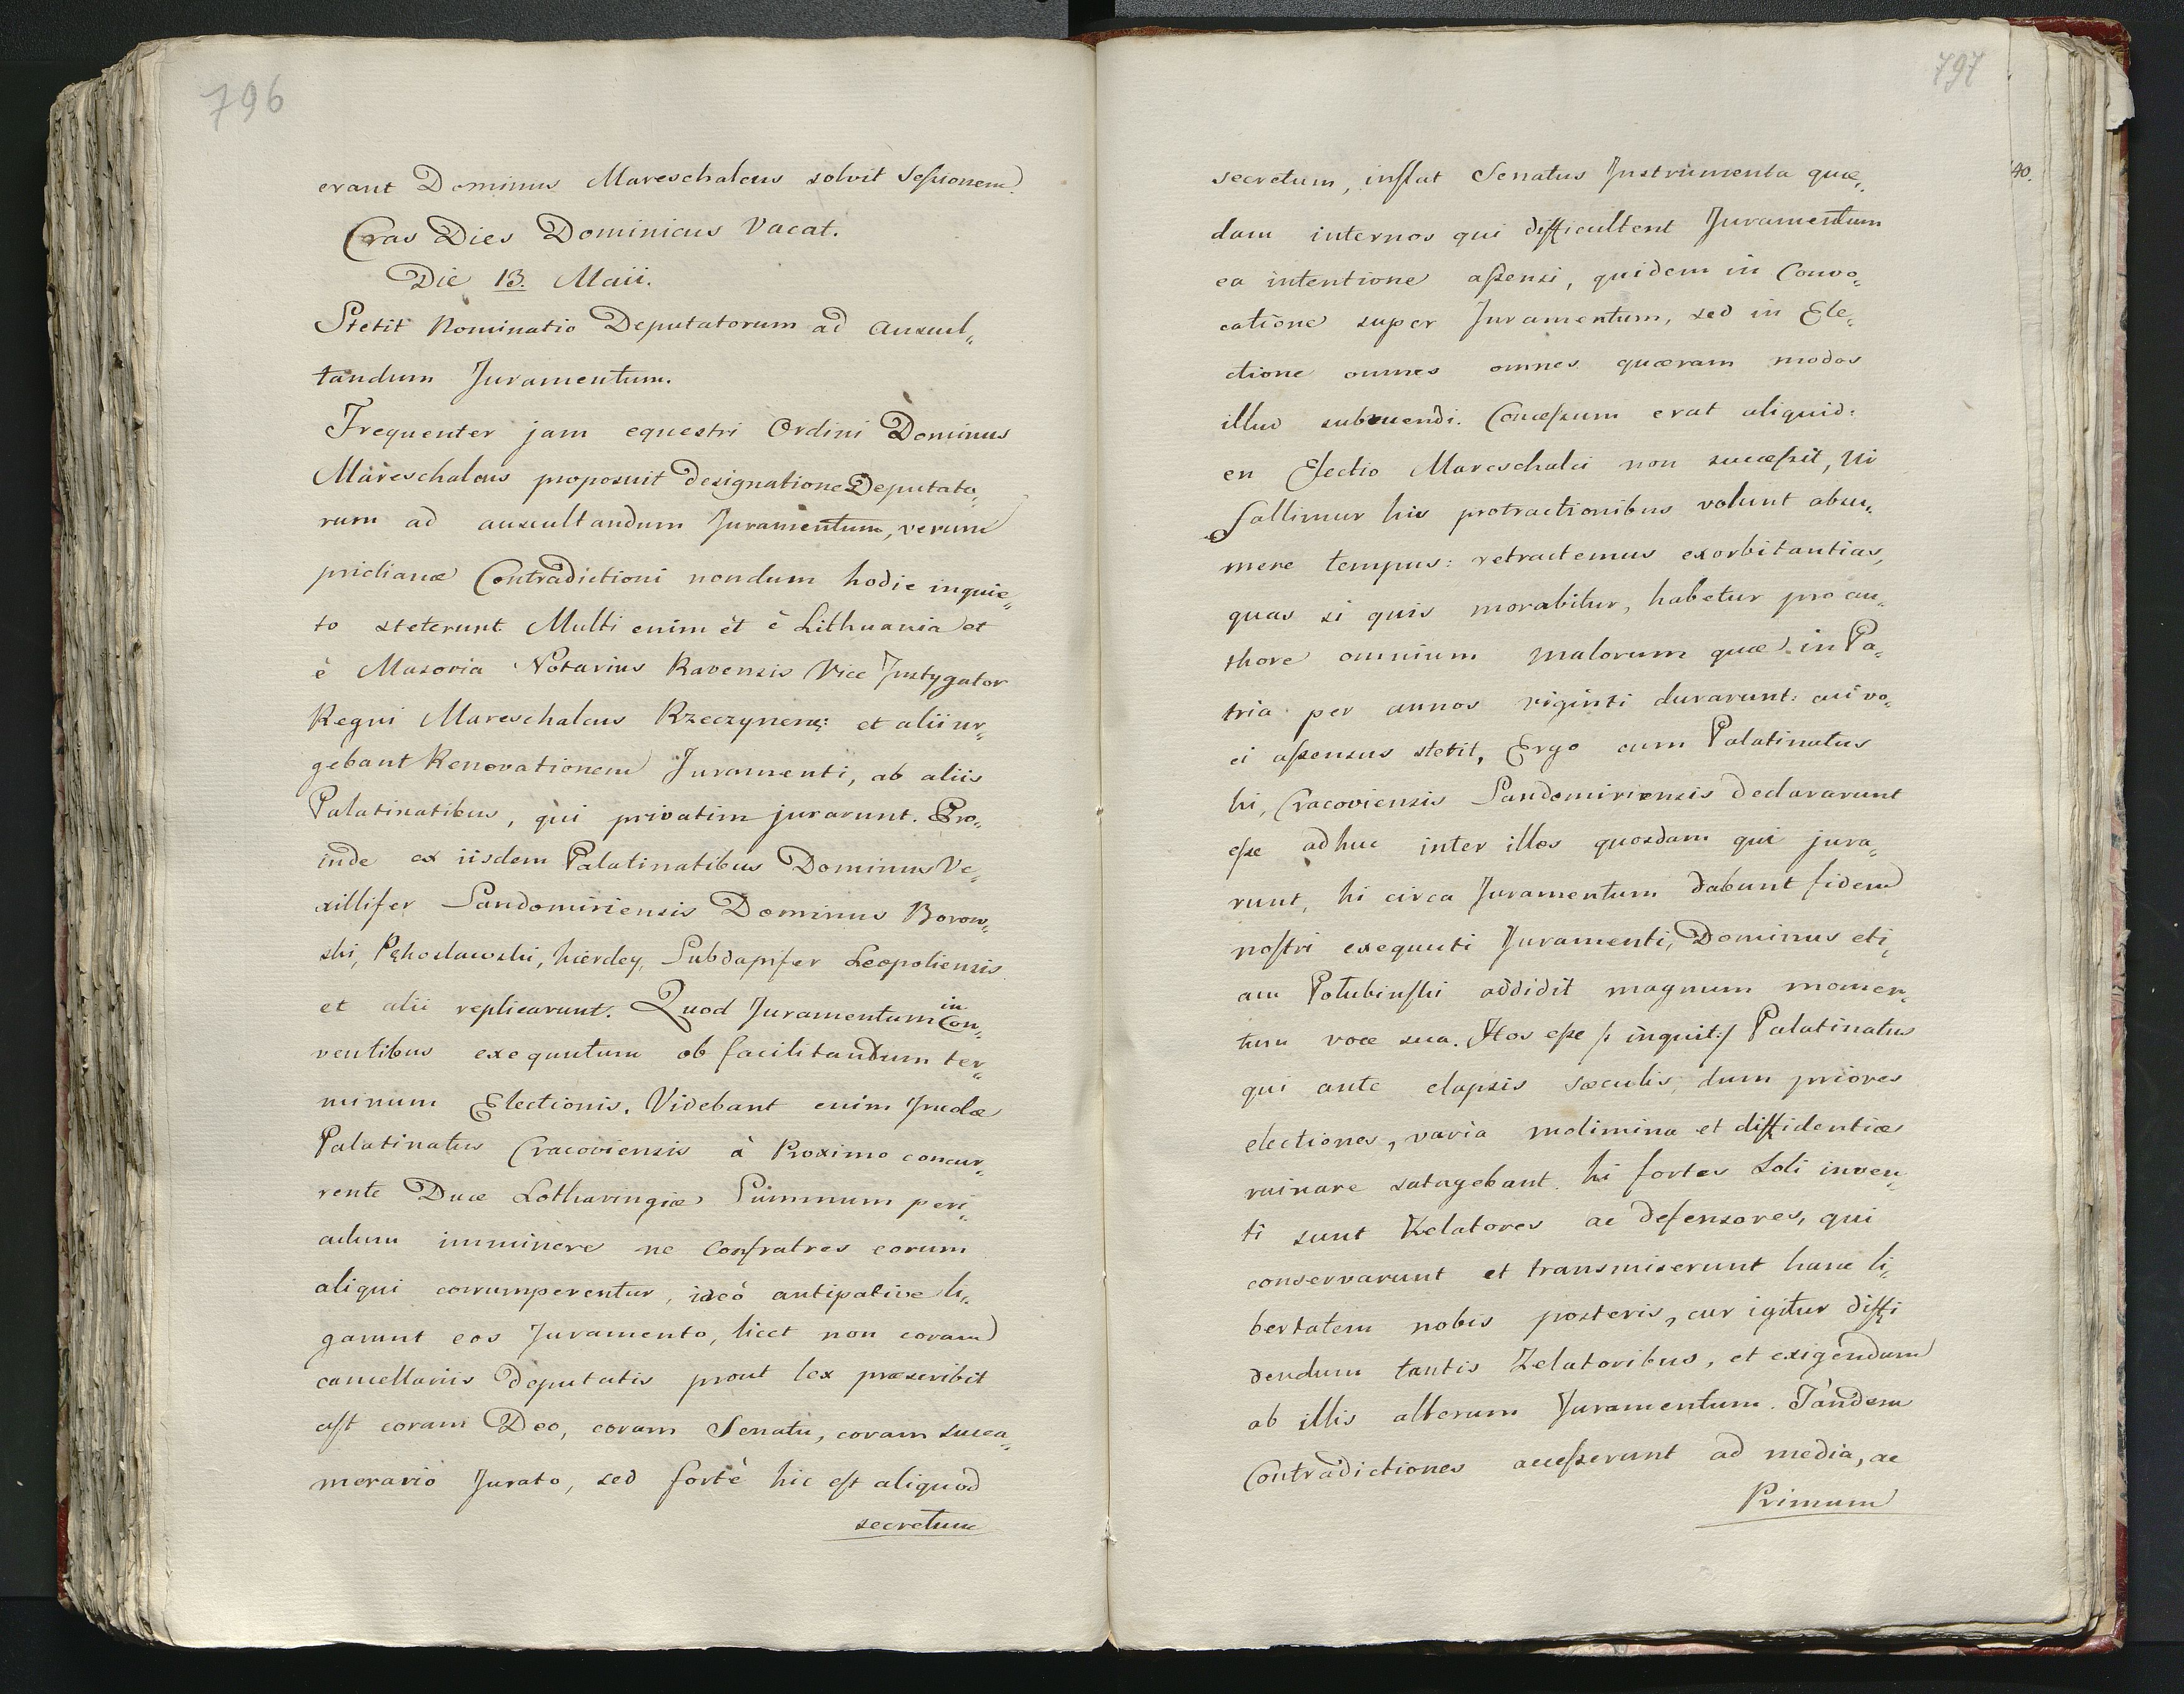 796
erant Dominus Mareschalcus solvit Sessionem.
Cras Dies Dominicus Vacat.
Die 13. Maii.
Stetit Nominatio Deputatorum ad Auscul„
tandum Juramentum.
Frequenter jam equestri Ordini Dominus
Mareschalcus proposuit designatione Deputato„
rum ad auscultandum Juramentum, verum
pridianæ Contradictioni nondum hodie inquie„
to steterunt. Multi enim èt è Lithuania et
è Masovia Notarius Ravensis Vice Instygator
Regni Mareschalcus Rzeczynens: et alii ur„
gebant Renovationem Juramenti, ab aliis
Palatinatibus, qui privatim jurarunt. Pro„
inde ex iisdem Palatinatibus Dominus Ve„
xillifer Sandomiriensis Dominus Borow„
ski, Pęhosławski, hierdey, Subdapifer Leopoliensis
et alii replicarunt. Quod Juramentum in Con„
ventibus exequutum ob facilitandum ter„
minum Electionis. Videbant enim Incolæ
Palatinatus Cracoviensis à Proximo concur„
rente Duce Lotharingiæ Summum peri„
culum imminere ne Confratres eorum
aliqui corrumperentur, ideò antipative li„
garunt eos Juramento, licet non coram
cancellariis deputatis prout lex præscribit
ast coram Deo, coram Senatu, coram succa„
merario Jurato, sed fortè hic est aliquod
secretum
797
secretum, instat Senatus Instrumenta quæ„
dam internos qui difficultent Juramentum
ea intentione assensi, quidem in Convo„
catione super Juramentum, sed in Ele„
ctione omnes omnes quæram modos
illud subruendi. Concessum erat aliquid:
en Electio Mareschalci non successit, Ni
fallimur his protractionibus volunt absu„
mere tempus: retractemus exorbitantias,
quas si quis morabitur, habetur pro au„
thore omnium malorum quæ in Pa„
tria per annos viginti durarunt: cui vo„
ci assensus stetit, Ergo cum Palatinatus
hi, Cracoviensis Sandomiriensis declararunt
esse adhuc inter illos quosdam qui jura„
runt, hi circa Juramentum dabunt fidem
nostri exequuti Juramenti, Dominus eti„
am Połubinski addidit magnum momen„
tum voce sua. Hos esse /: inquit :/ Palatinatus
qui ante elapsis sæculis, dum priores
electiones, varia molimina et diffidentiæ
ruinare satagebant. hi fortes Soli inven„
ti sunt Zelatores ac defensores, qui
conservarunt et transmiserunt hanc li„
bertatem nobis posteris, cur igitur diffi
dendum tantis Zelatoribus, et exigendum
ab illis alterum Juramentum. Tandem
Contradictiones accesserunt ad media, ac
Primum
40.